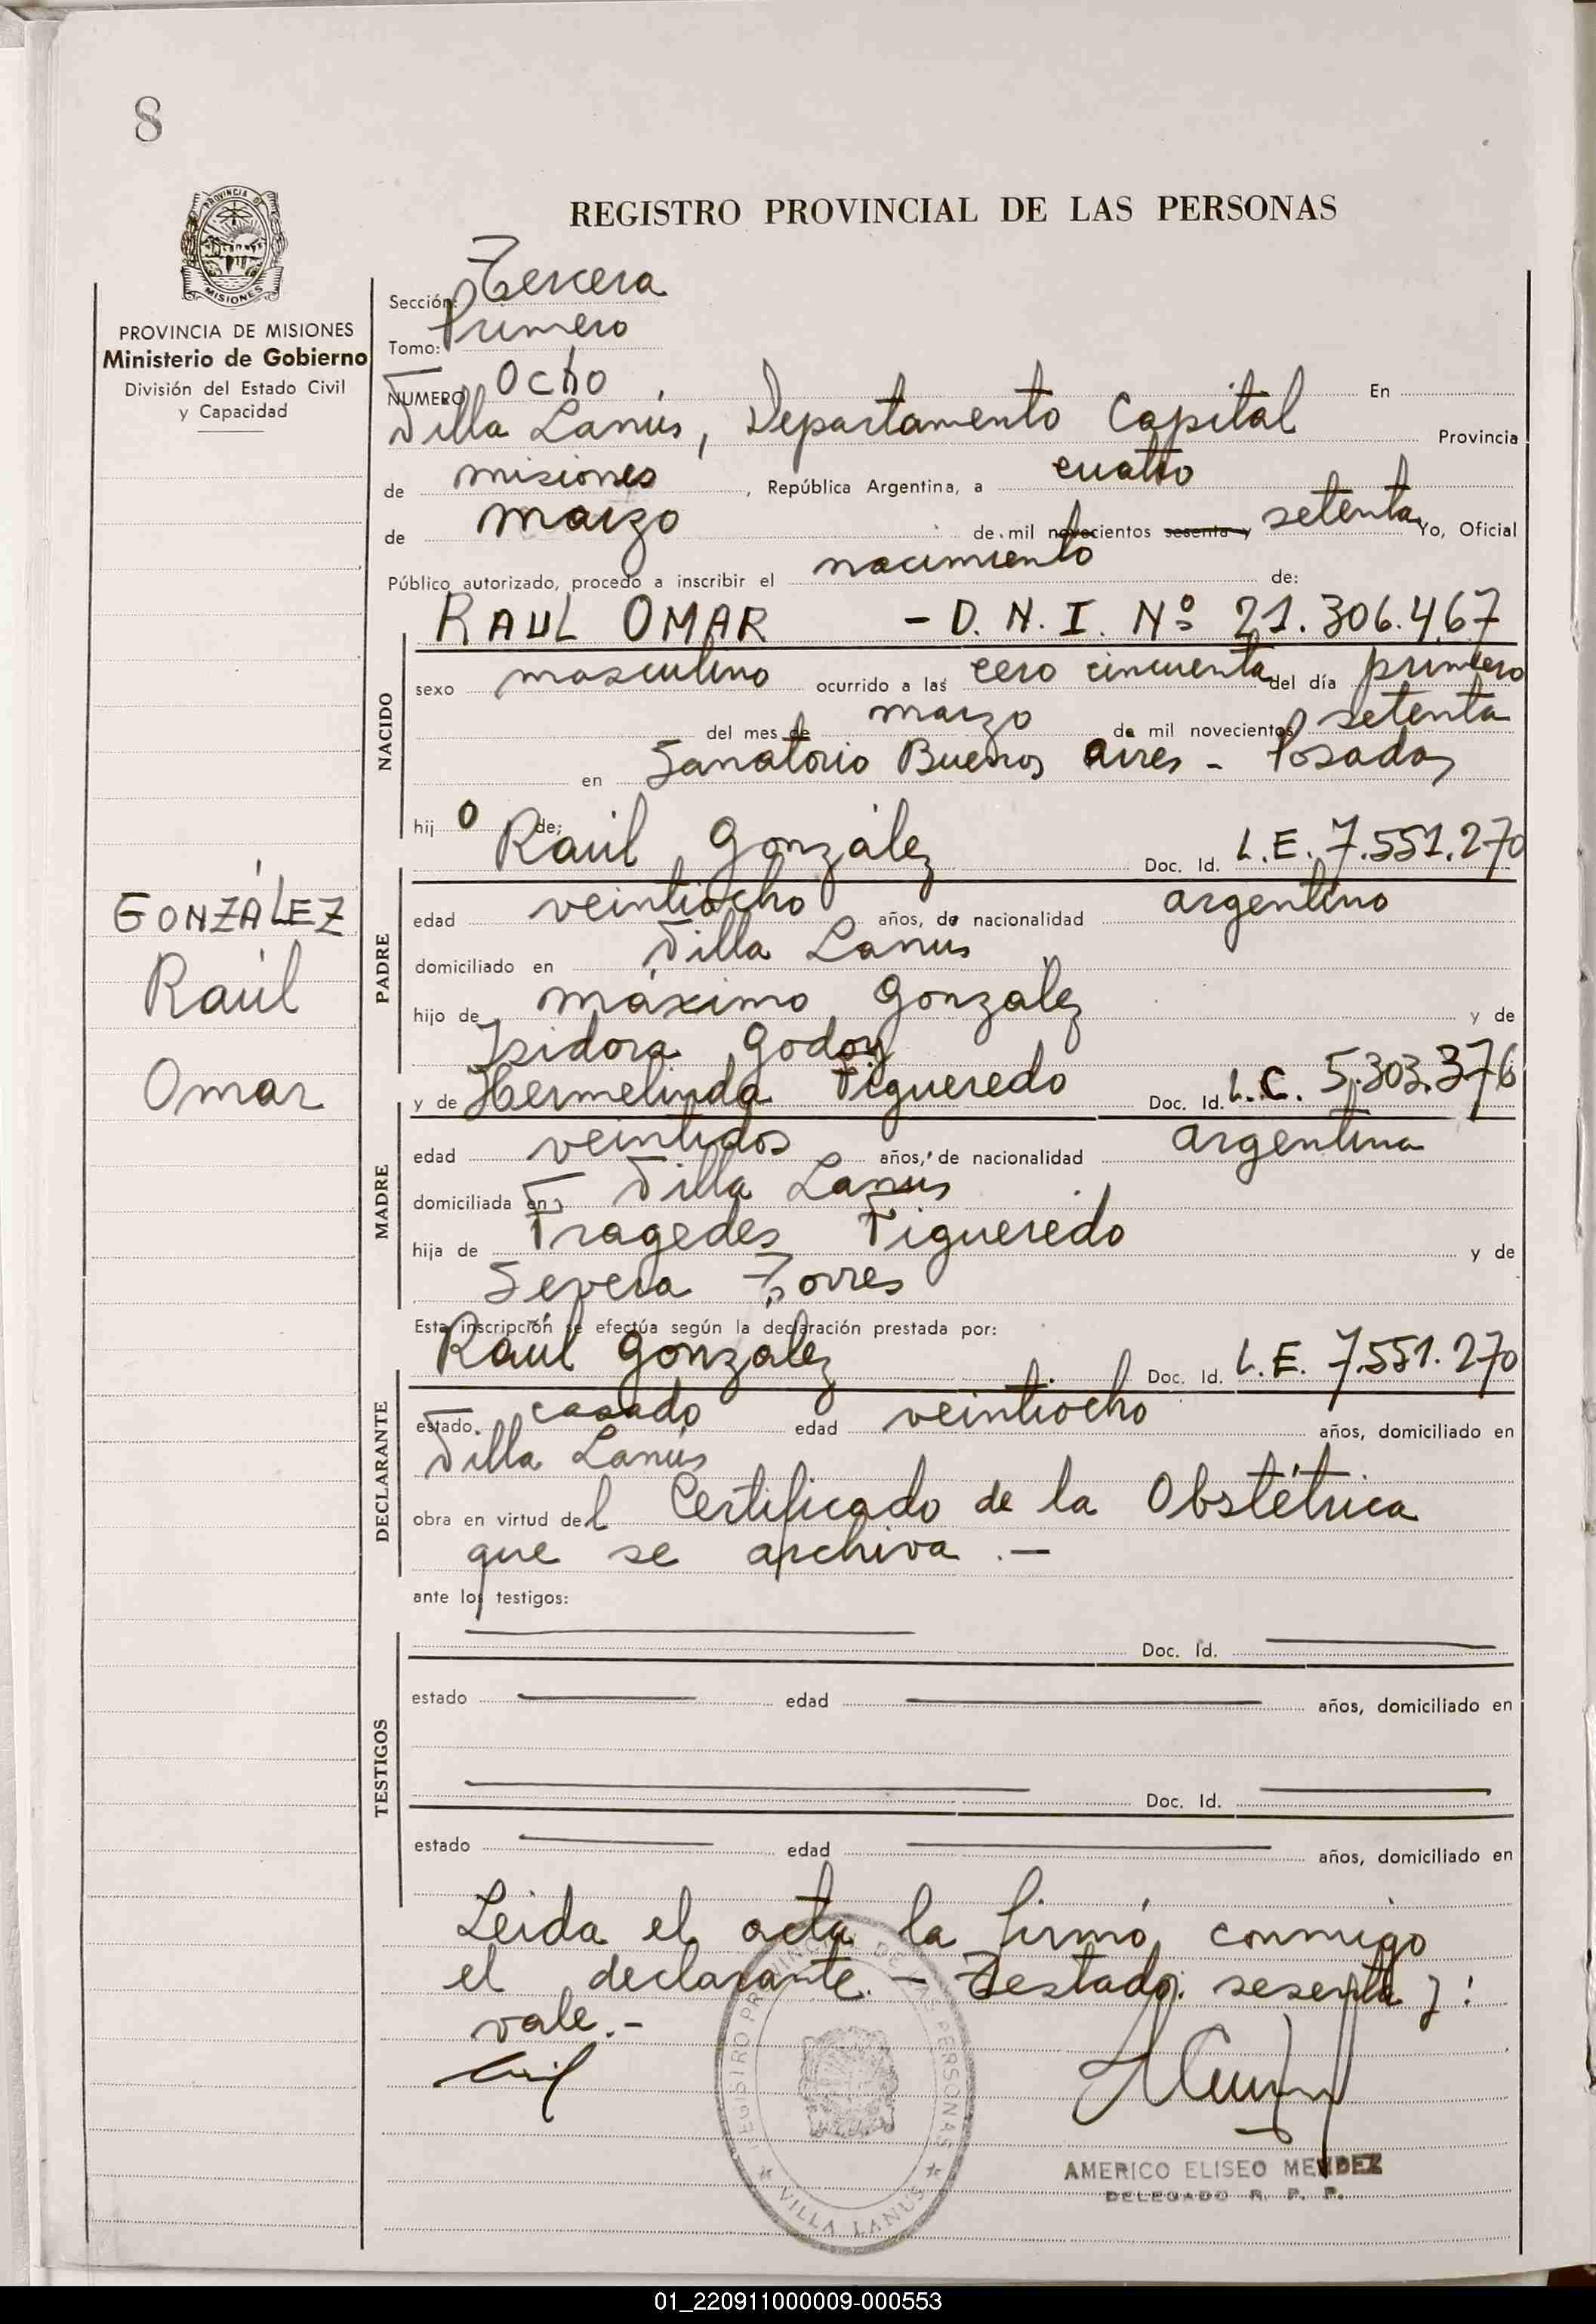 8
PROVINCIA DE
MISIONES
PROVINCIA DE MISIONES
Ministerio de Gobierno
División del Estado Civil
y Capacidad
GONZÁLEZ
Raúl
Omar
REGISTRO PROVINCIAL DE LAS PERSONAS
Sección: Tercera
Tomo: Primero
NUMERO Ocho En
Villa Lanús, Departamento Capital Provincia
de misiones, República Argentina, a cuatro
de marzo de mil novecientos sesenta y setenta Yo, Oficial
Público autorizado, procedo a inscribir el nacimiento de:
RAUL OMAR - D. N. I. Nº 21.306.467
NACIDO
sexo masculino ocurrido a las cero cincuenta del día primero
del mes de marzo de mil novecientos setenta
en Sanatorio Buenos Aires - Posadas
hijo de: Raúl González Doc. Id. L.E. 7.551.270
PADRE
edad veintiocho años, de nacionalidad argentino
domiciliado en Villa Lanus
hijo de máximo González y de
Isidora Godoy
y de Hermelinda Figueredo Doc. Id. L.C. 5.303.376
MADRE
edad veintidos años, de nacionalidad argentina
domiciliada en Villa Lanus
hija de Fragedes Figueredo y de
Severa Torres
Esta inscripción se efectúa según la declaración prestada por:
Raúl González Doc. Id. L.E. 7.551.270
DECLARANTE
estado casado edad veintiocho años, domiciliado en
Villa Lanús
obra en virtud del Certificado de la Obstétrica
que se archiva .-
ante los testigos:
TESTIGOS
Doc. Id.
estado edad años, domiciliado en
Doc. Id.
estado edad años, domiciliado en
Leida el acta la firmó conmigo
el declarante. - Testado: sesenta y:
vale.-
REGISTRO PROVINCIAL DE LAS PERSONAS
VILLA LANUS
AMERICO ELISEO MENDEZ
DELEGADO R. P. P.
01_220911000009-000553